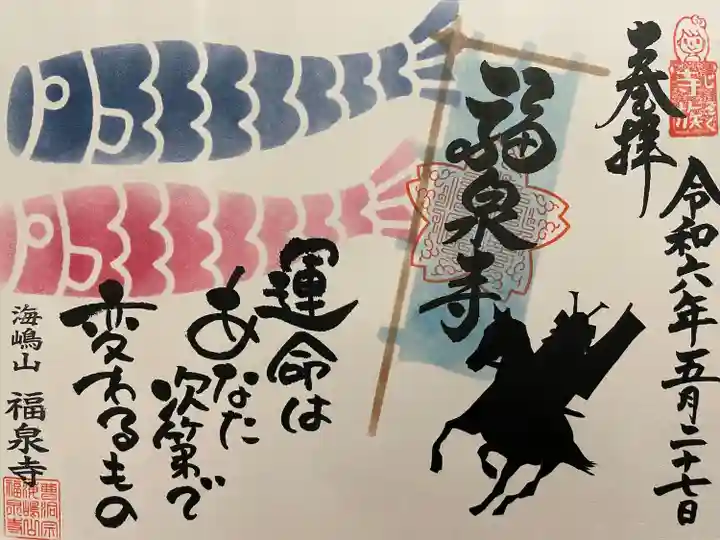 奉拝
令和六年五月二十七日
福泉寺
運命は
あなた
次第で
変わるもの
海嶋山 福泉寺
曹洞宗
海嶋山
福泉寺